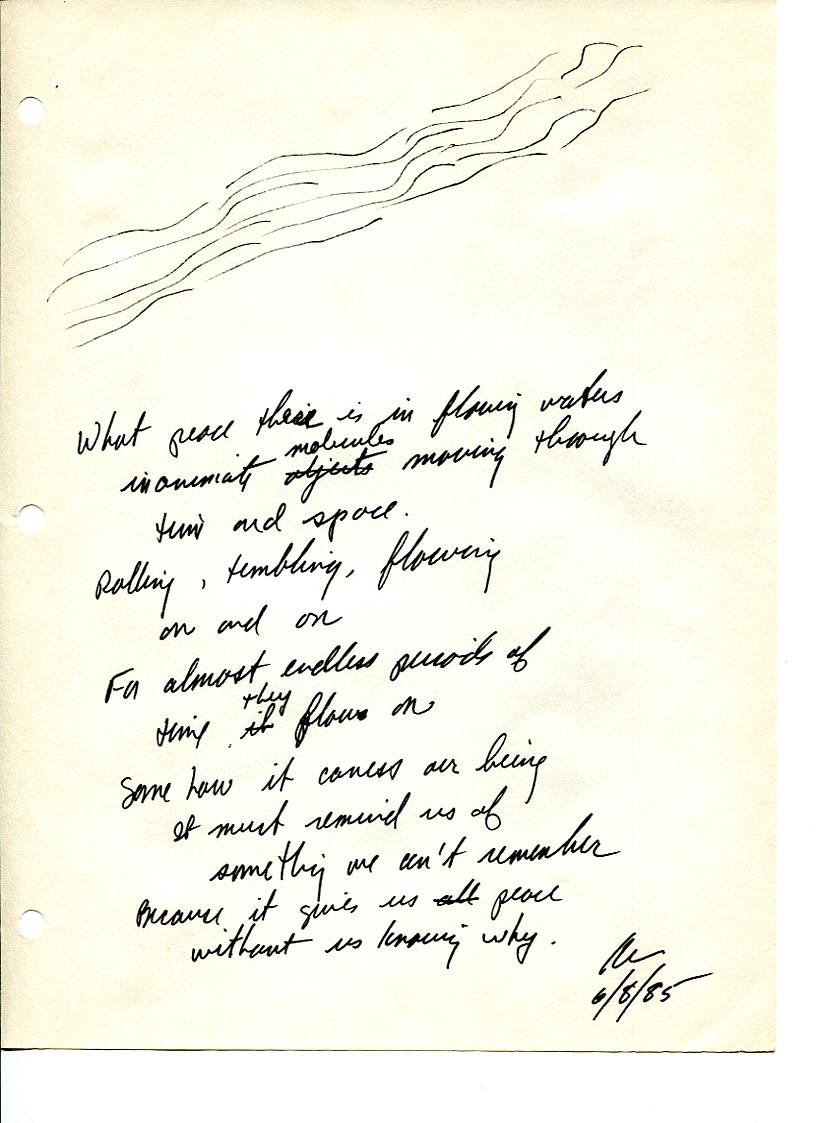 What peace there is in flowing waters
inanimate objects molecules moving through
time and space.
Rolling, tumbling, flowing
on and on
For almost endless periods of
time it they flow on
Some how it caress our being
It must remind us of
something we can't remember
Because it gives us all peace
without us knowing why.
6/8/85